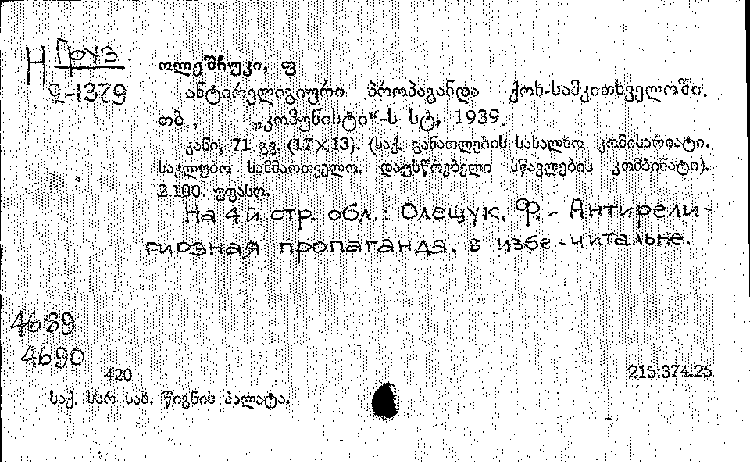 Н Груз
2-1379
ოლეშჩუკი, ფ
ანტირელიგიური პროპაგანდა ქოხ-სამკითხველოში.
თბ., „კომუნისტი“-ს სტ, 1939.
კანი, 71 გვ. (17×13). (საქ. განათლების სახალხო კომისარიატი.
საკლუბო სამმართველო. დაუსწრებელი სწავლების კომბინატი).
2.100. უფასო.
На 4й стр. обл.: Олещук, Ф. - Антирели-
гиозная пропаганда. в избе-читальне.
4689
4690
420
215.374.25
საქ. სსრ სახ. წიგნის პალატა.